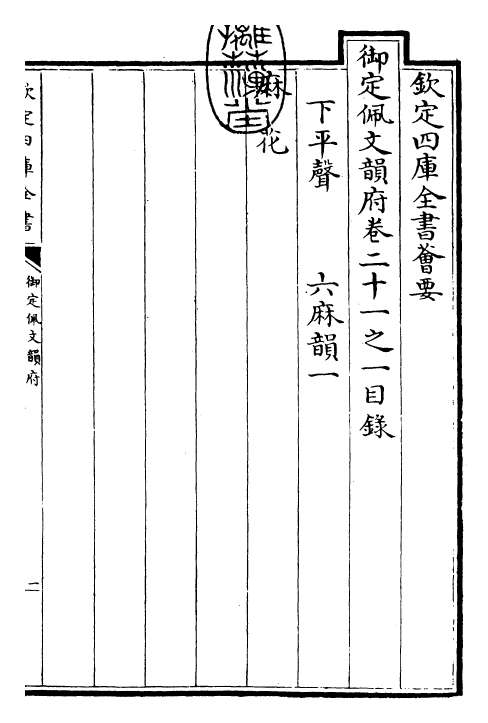 欽定四庫全書薈要
御定佩文韻府卷二十一之一目錄
下平聲　六麻韻一
麻　花
欽定四庫全書
御定佩文韻府
二